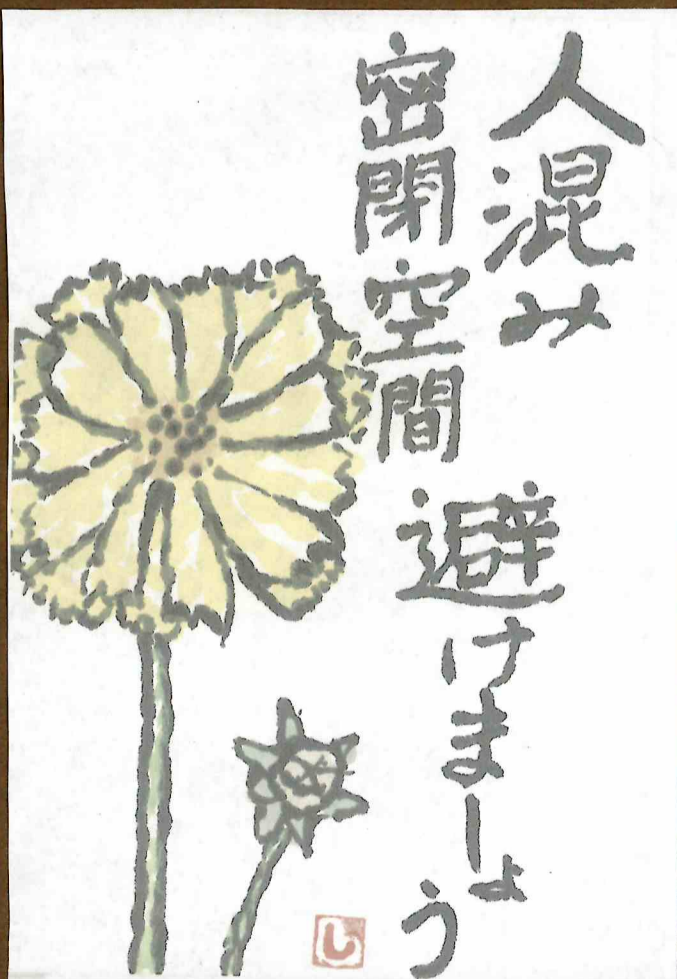 人混み
密閉空間
避けましょう
し